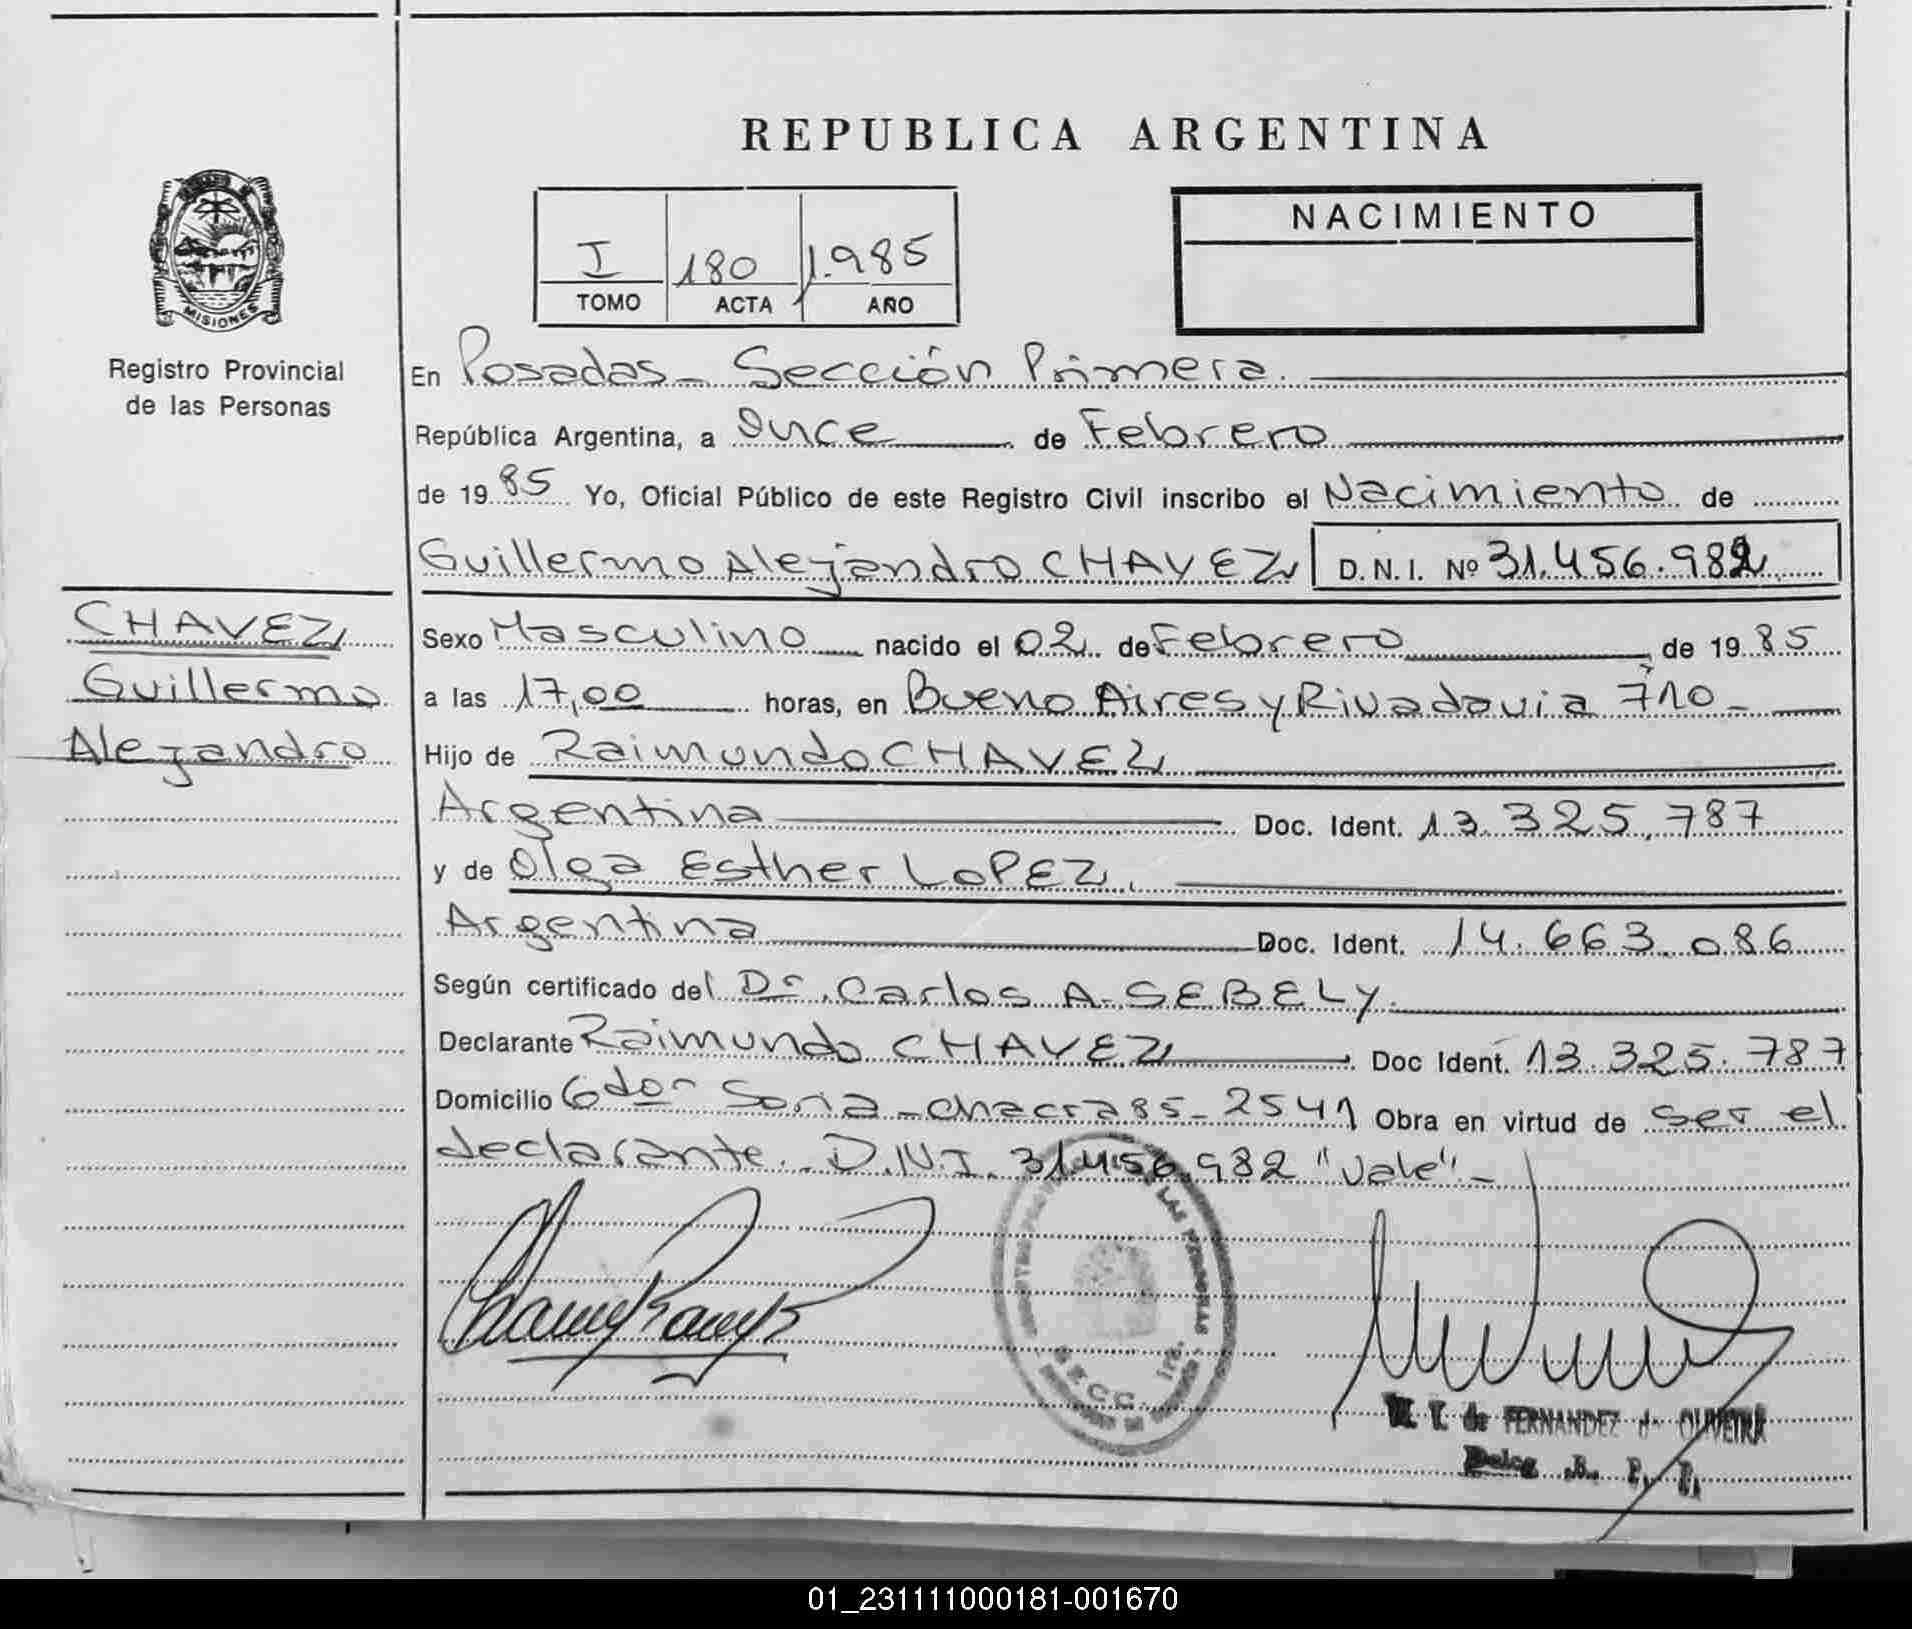 REPUBLICA ARGENTINA
NACIMIENTO
I 180 1.985
TOMO ACTA AÑO
MISIONES
Registro Provincial
de las Personas
En Posadas - Sección Primera.
República Argentina, a Once de Febrero
de 1985 Yo, Oficial Público de este Registro Civil inscribo el Nacimiento de
Guillermo Alejandro CHAVEZ D.N.I. Nº 31.456.982
CHAVEZ
Guillermo
Alejandro
Sexo Masculino nacido el 02 de Febrero, de 1985
a las 17,00 horas, en Bueno Aires y Rivadavia 710-
Hijo de Raimundo CHAVEZ
Argentina Doc. Ident. 13.325.787
y de Olga Esther LOPEZ,
Argentina Doc. Ident. 14.663.086
Según certificado del Dr. Carlos A. SEBELY.
Declarante Raimundo CHAVEZ Doc Ident. 13.325.787
Domicilio Gdor Soria - chacra 85 - 2541 Obra en virtud de ser el
declarante. D.N.I. 31.456.982 "Vale" -
LAS PERSONAS
SECC. 1ra.
M. T. de FERNANDEZ de OLIVEIRA
Deleg. R. P. P.
01_231111000181-001670